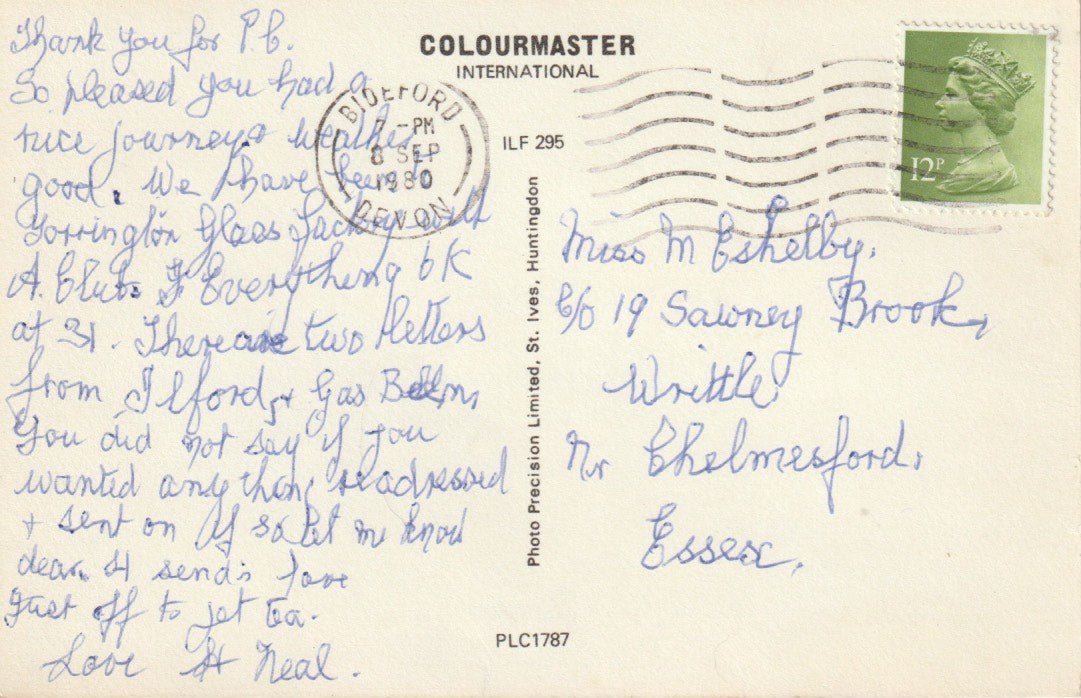 Thank you for P.C.
So pleased you had a
nice journey & weather
good. We have been
Torrington Glass Factory with
A. Club. Everything OK
at 31. There are two letters
from Ilford, & Gas
You did not say if you
wanted any thing readressed
& sent on If so let me know
dear. H sends love
Just off to get tea.
Love H Neal.
COLOURMASTER
INTERNATIONAL
ILF 295
BIDEFORD
7-PM
8 SEP
1980
DEVON
12P
Photo Precision Limited, St. Ives, Huntingdon
Miss M Eshelby.
C/O 19 Sawney Brook,
Writtle
Nr Chelmesford,
Essex.
PLC1787